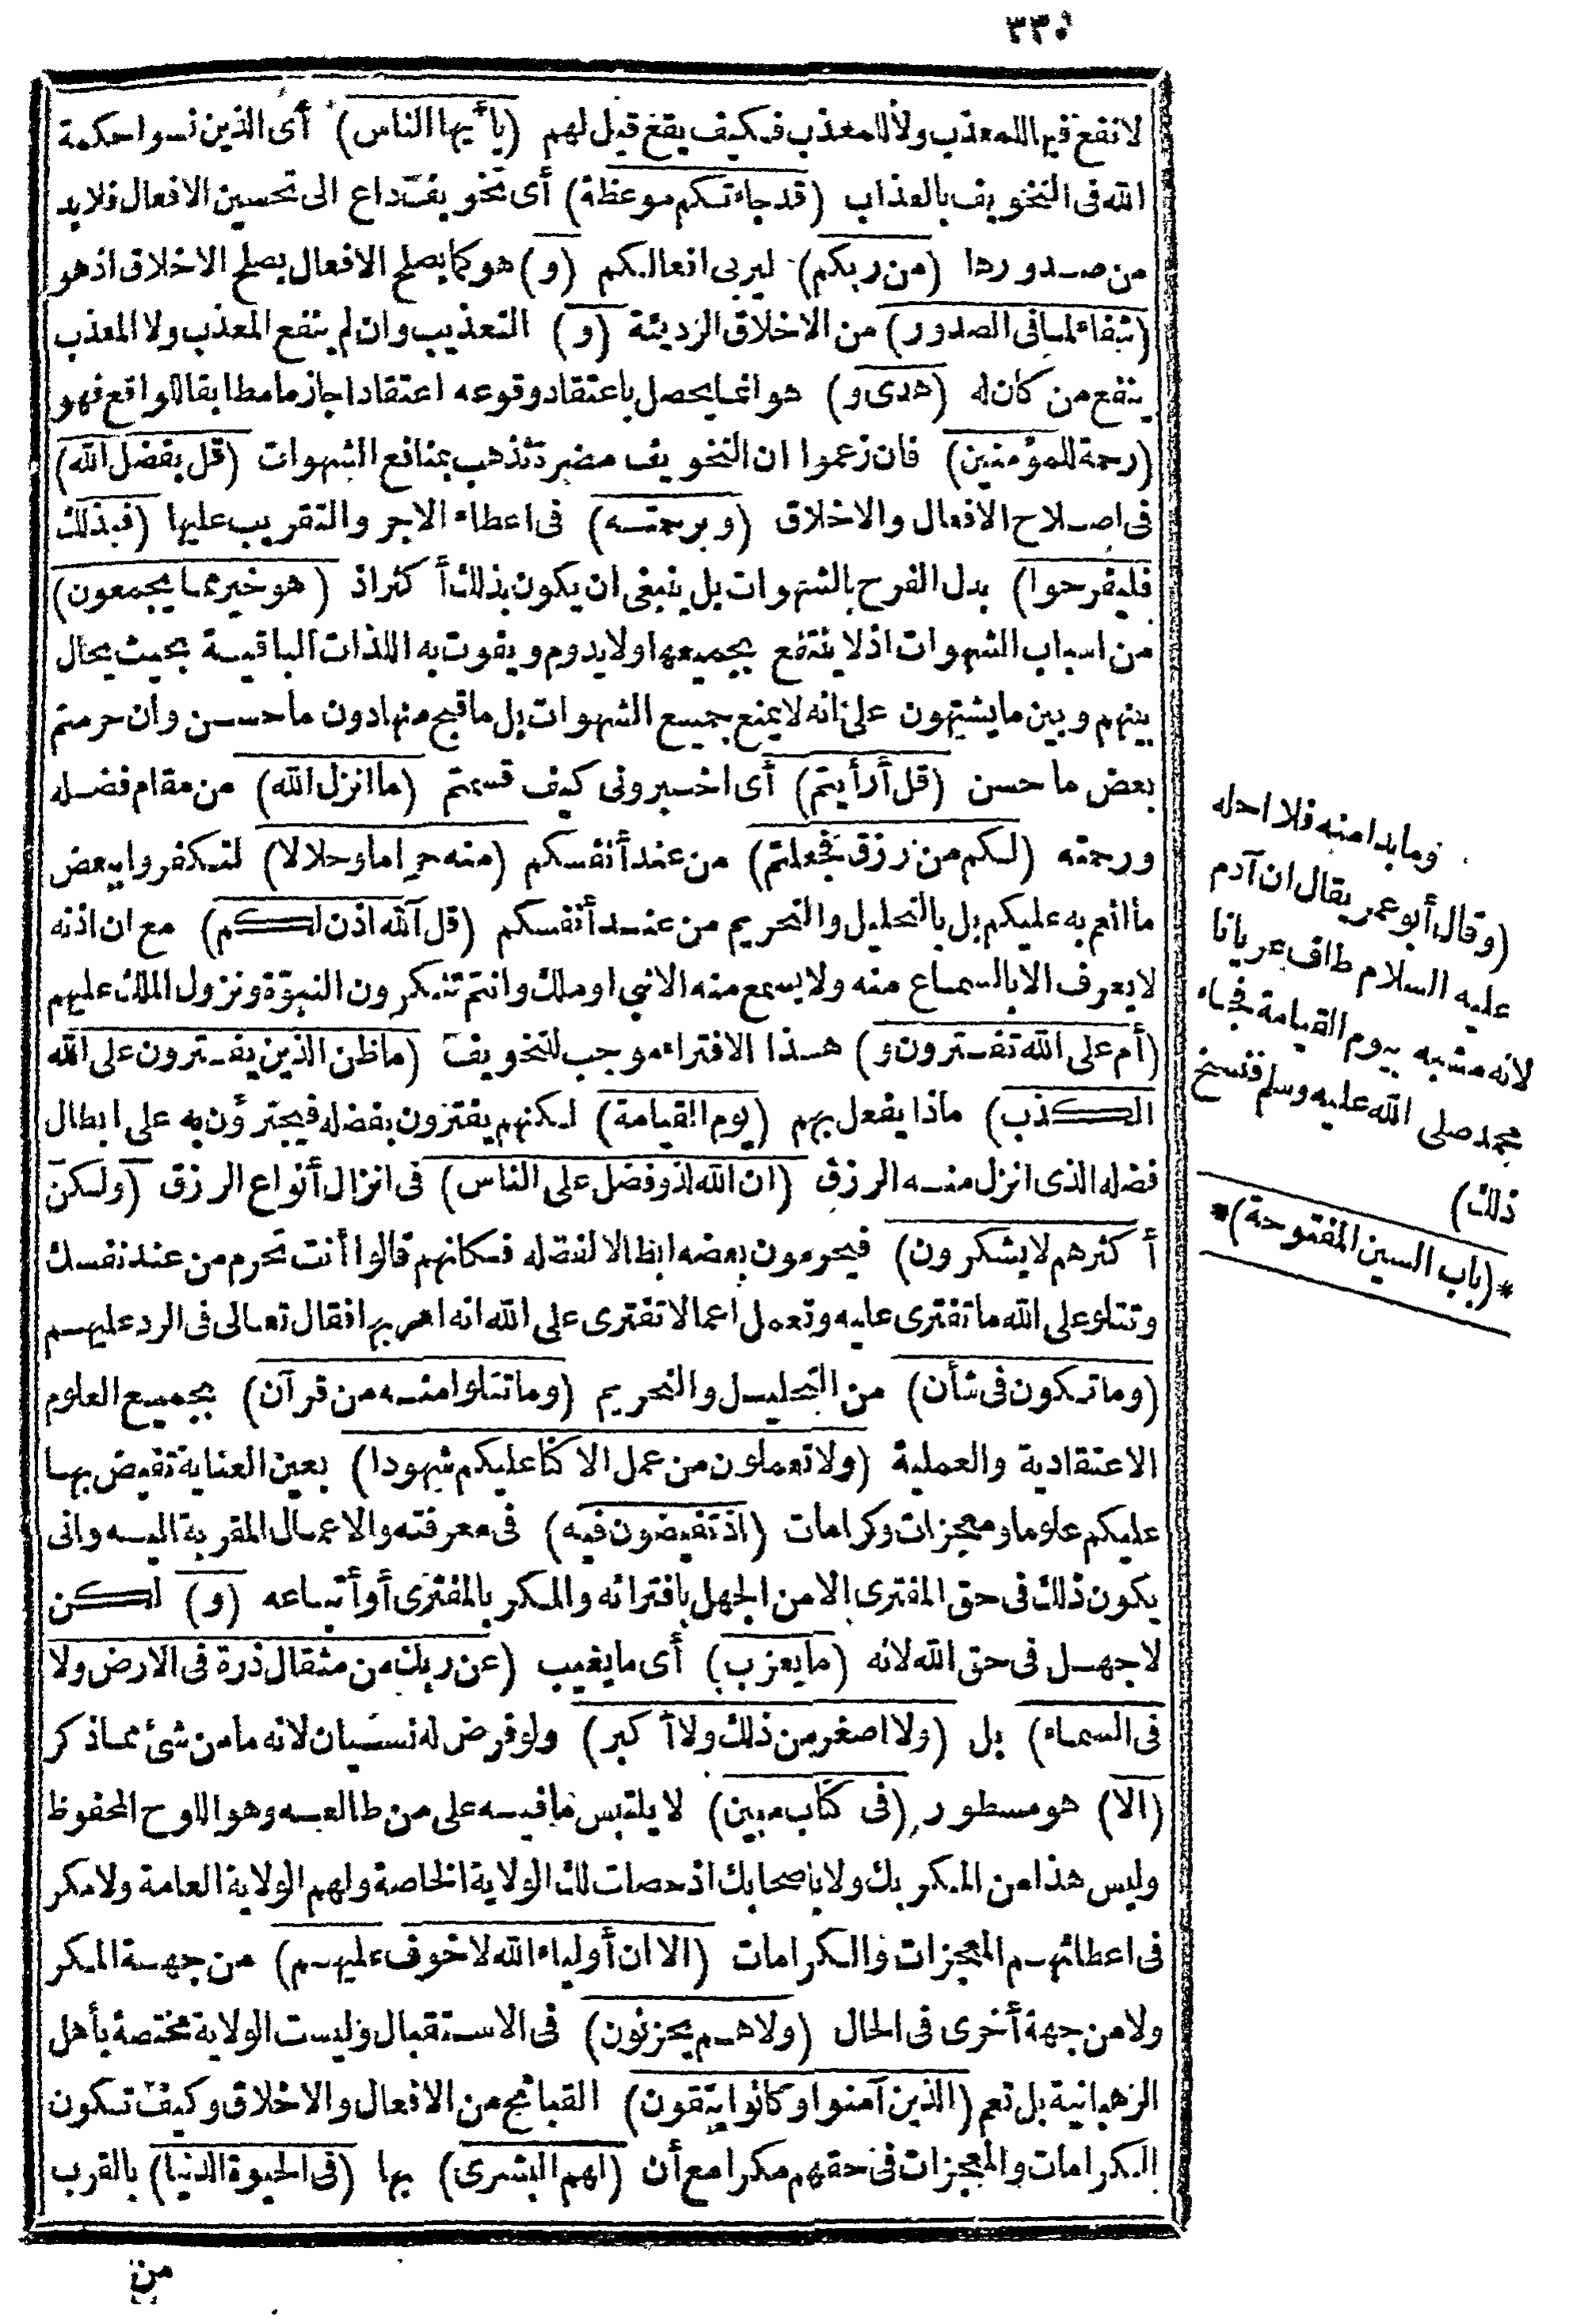 ٣٣٠
لانفع فيها للمعذب ولا للمعذب فكيف يقع قيل لهم (ياأيها الناس) أى الذين نسوا حكمة
الله فى التخويف بالعذاب (قد جاءتكم موعظة) أى تخويف داع الى تحسين الافعال فلا بد
من صدورها (من ربكم) ليربى افعالكم (و) هو كما يصلح الافعال يصلح الاخلاق اذ هو
(شفاء لما فى الصدور) من الاخلاق الرديئة (و) التعذيب وان لم ينفع المعذب ولا المعذب
ينفع من كان له (هدى و) هو انما يحصل باعتقاد وقوعه اعتقادا جازما مطابقا للواقع فهو
(رحمة للمؤمنين) فان زعموا ان التخويف مضرة تذهب بمنافع الشهوات (قل بفضل الله)
فى اصلاح الافعال والاخلاق (وبرحمته) فى اعطاء الاجر والتقريب عليها (فبذلك
فليفرحوا) بدل الفرح بالشهوات بل ينبغى ان يكون بذلك أكثر اذ (هو خير مما يجمعون)
من اسباب الشهوات اذ لا ينتفع بجميعها ولا يدوم ويفوت به اللذات الباقية بحيث يحال
بينهم وبين ما يشتهون على انه لا يمنع جميع الشهوات بل ما قبح منها دون ما حسن وان حرمتم
بعض ما حسن (قل أرأيتم) أى اخبرونى كيف قسمتم (ما انزل الله) من مقام فضله
ورحمته (لكم من رزق فجعلتم) من عند أنفسكم (منه حراما وحلالا) لتكفروا ببعض
ما انعم به عليكم بل بالتحليل والتحريم من عند أنفسكم (قل آلله اذن لكم) مع ان اذنه
لا يعرف الا بالسماع منه ولا يسمع منه الا نبى او ملك وانتم تنكرون النبوّة ونزول الملك عليهم
(أم على الله تفترون و) هذا الافتراء موجب للتخويف (ما ظن الذين يفترون على الله
الكذب) ماذا يفعل بهم (يوم القيامة) لكنهم يغترون بفضله فيجترؤن به على ابطال
فضله الذى انزل منه الرزق (ان الله لذو فضل على الناس) فى انزال أنواع الرزق (ولكن
أكثرهم لا يشكرون) فيحرمون بعضه ابطالا لفضله فكانهم قالوا أنت تحرم من عند نفسك
وتتلو على الله ما تفترى عليه وتعمل اعمالا تفترى على الله انه امر بها فقال تعالى فى الرد عليهم
(وما تكون فى شأن) من التحليل والتحريم (وما تتلوا منه من قرآن) بجميع العلوم
الاعتقادية والعملية (ولا تعملون من عمل الا كنا عليكم شهودا) بعين العناية تفيض بها
عليكم علوما ومعجزات وكرامات (اذ تفيضون فيه) فى معرفته والاعمال المقربة اليه وانى
يكون ذلك فى حق المفترى الا من الجهل بافترائه والمكر بالمفترى أو أتباعه (و) لكن
لا جهل فى حق الله لانه (ما يعزب) أى ما يغيب (عن ربك من مثقال ذرة فى الارض ولا
فى السماء) بل (ولا اصغر من ذلك ولا أكبر) ولو فرض له نسيان لانه ما من شئ مما ذكر
(الا) هو مسطور (فى كتاب مبين) لا يلتبس ما فيه على من طالعه وهو اللوح المحفوظ
وليس هذا من المكر بك ولا باصحابك اذ حصلت لك الولاية الخاصة ولهم الولاية العامة ولا مكر
فى اعطائهم المعجزات والكرامات (الا ان أولياء الله لا خوف عليهم) من جهة المكر
ولا من جهة أخرى فى الحال (ولا هم يحزنون) فى الاستقبال وليست الولاية مختصة بأهل
الرهبانية بل تعم (الذين آمنوا وكانوا يتقون) القبائح من الافعال والاخلاق وكيف تكون
الكرامات والمعجزات فى حقهم مكرا مع أن (لهم البشرى) بها (فى الحيوة الدنيا) بالقرب
من
وما بدا منه فلا احله
(وقال أبو عمر يقال ان آدم
عليه السلام طاف عريانا
لانه مشبه بيوم القيامة فجاء
محمد صلى الله عليه وسلم فنسخ
ذلك)
*(باب السين المفتوحة)*